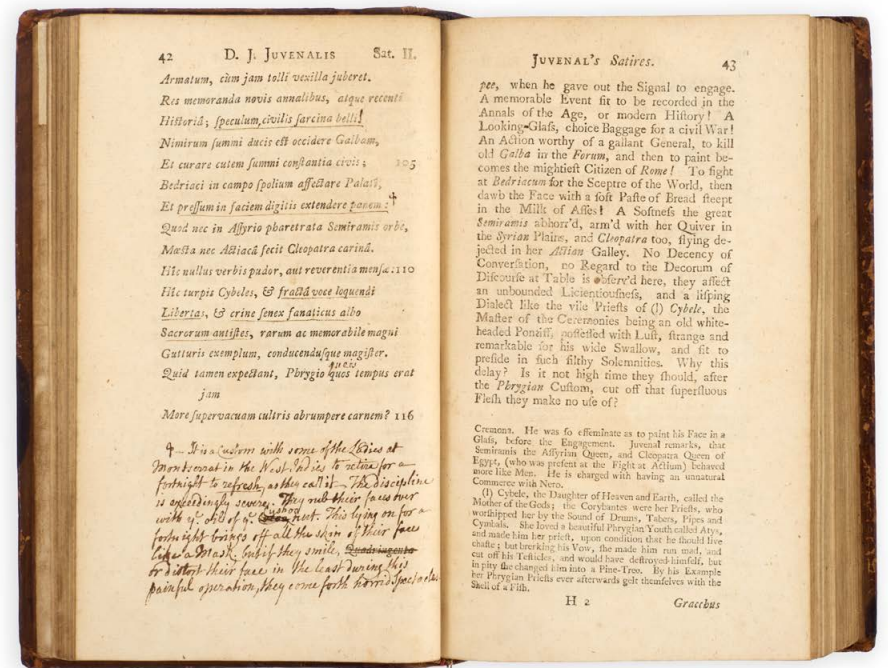 42 D. J. JUVENALIS Sat. II.
Armatum, cùm jam tolli vexilla juberet.
Res memoranda novis annalibus, atque recenti
Hiſtoriâ; ſpeculum, civilis ſarcina belli!
Nimirum ſummi ducis eſt occidere Galbam,
Et curare cutem ſummi conſtantia civis; 105
Bedriaci in campo ſpolium affectare Palatî,
Et preſſum in faciem digitis extendere panem: ✝
Quod nec in Aſſyrio pharetrata Semiramis orbe,
Mœſta nec Actiacâ fecit Cleopatra carinâ.
Hîc nullus verbis pudor, aut reverentia menſæ: 110
Hîc turpis Cybeles, & fractâ voce loquendi
Libertas, & crine ſenex fanaticus albo
Sacrorum antiſtes, rarum ac memorabile magni
Gutturis exemplum, conducenduſque magiſter.
queis
Quid tamen expectant, Phrygio quos tempus erat
jam
More ſupervacuam cultris abrumpere carnem? 116
✝ – It is a Cuſtom with some of the Ladies at
Montserrat in the West Indies to retire for a
fortnight to refresh, as they call it – The discipline
is exceedingly severe. They rub their faces over
Cushoo
with yᵉ. oyl of yᵉ. nut. This lying on for a
fortnight brings off all the skin of their face
like a Mask. but if they smile, Quadringenta
or distort their face in the least during this
painful operation, they come forth horrid Spectacles
JUVENAL's Satires. 43
pee, when he gave out the Signal to engage.
A memorable Event fit to be recorded in the
Annals of the Age, or modern Hiſtory! A
Looking-Glaſs, choice Baggage for a civil War!
An Action worthy of a gallant General, to kill
old Galba in the Forum, and then to paint be-
comes the mightieſt Citizen of Rome! To fight
at Bedriacum for the Sceptre of the World, then
dawb the Face with a ſoft Paſte of Bread ſteept
in the Milk of Aſſes! A Softneſs the great
Semiramis abhorr'd, arm'd with her Quiver in
the Syrian Plains, and Cleopatra too, flying de-
jected in her Actian Galley. No Decency of
Converſation, no Regard to the Decorum of
Diſcourſe at Table is obſerv'd here, they affect
an unbounded Licientiouſneſs, and a liſping
Dialect like the vile Prieſts of (l) Cybele, the
Maſter of the Ceremonies being an old white-
headed Pontiff, poſſeſſed with Luſt, ſtrange and
remarkable for his wide Swallow, and fit to
preſide in ſuch filthy Solemnities. Why this
delay? Is it not high time they ſhould, after
the Phrygian Cuſtom, cut off that ſuperfluous
Fleſh they make no uſe of?
Cremona. He was ſo effeminate as to paint his Face in a
Glaſs, before the Engagement. Juvenal remarks, that
Semiramis the Aſſyrian Queen, and Cleopatra Queen of
Egypt, (who was preſent at the Fight at Actium) behaved
more like Men. He is charged with having an unnatural
Commerce with Nero.
(l) Cybele, the Daughter of Heaven and Earth, called the
Mother of the Gods; the Corybantes were her Prieſts, who
worſhipped her by the Sound of Drums, Tabers, Pipes and
Cymbals. She loved a beautiful Phrygian Youth called Atys,
and made him her prieſt, upon condition that he ſhould live
chaſte; but breaking his Vow, ſhe made him run mad, and
cut off his Teſticles, and would have deſtroyed himſelf, but
in pity ſhe changed him into a Pine-Tree. By his Example
her Phrygian Prieſts ever afterwards gelt themſelves with the
Shell of a Fiſh.
H 2 Gracchus